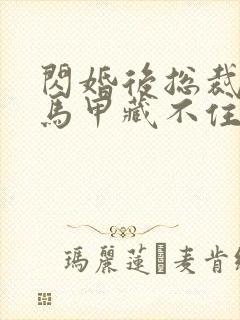 閃婚後總裁
馬甲藏不住
瑪麗蓮麦肯